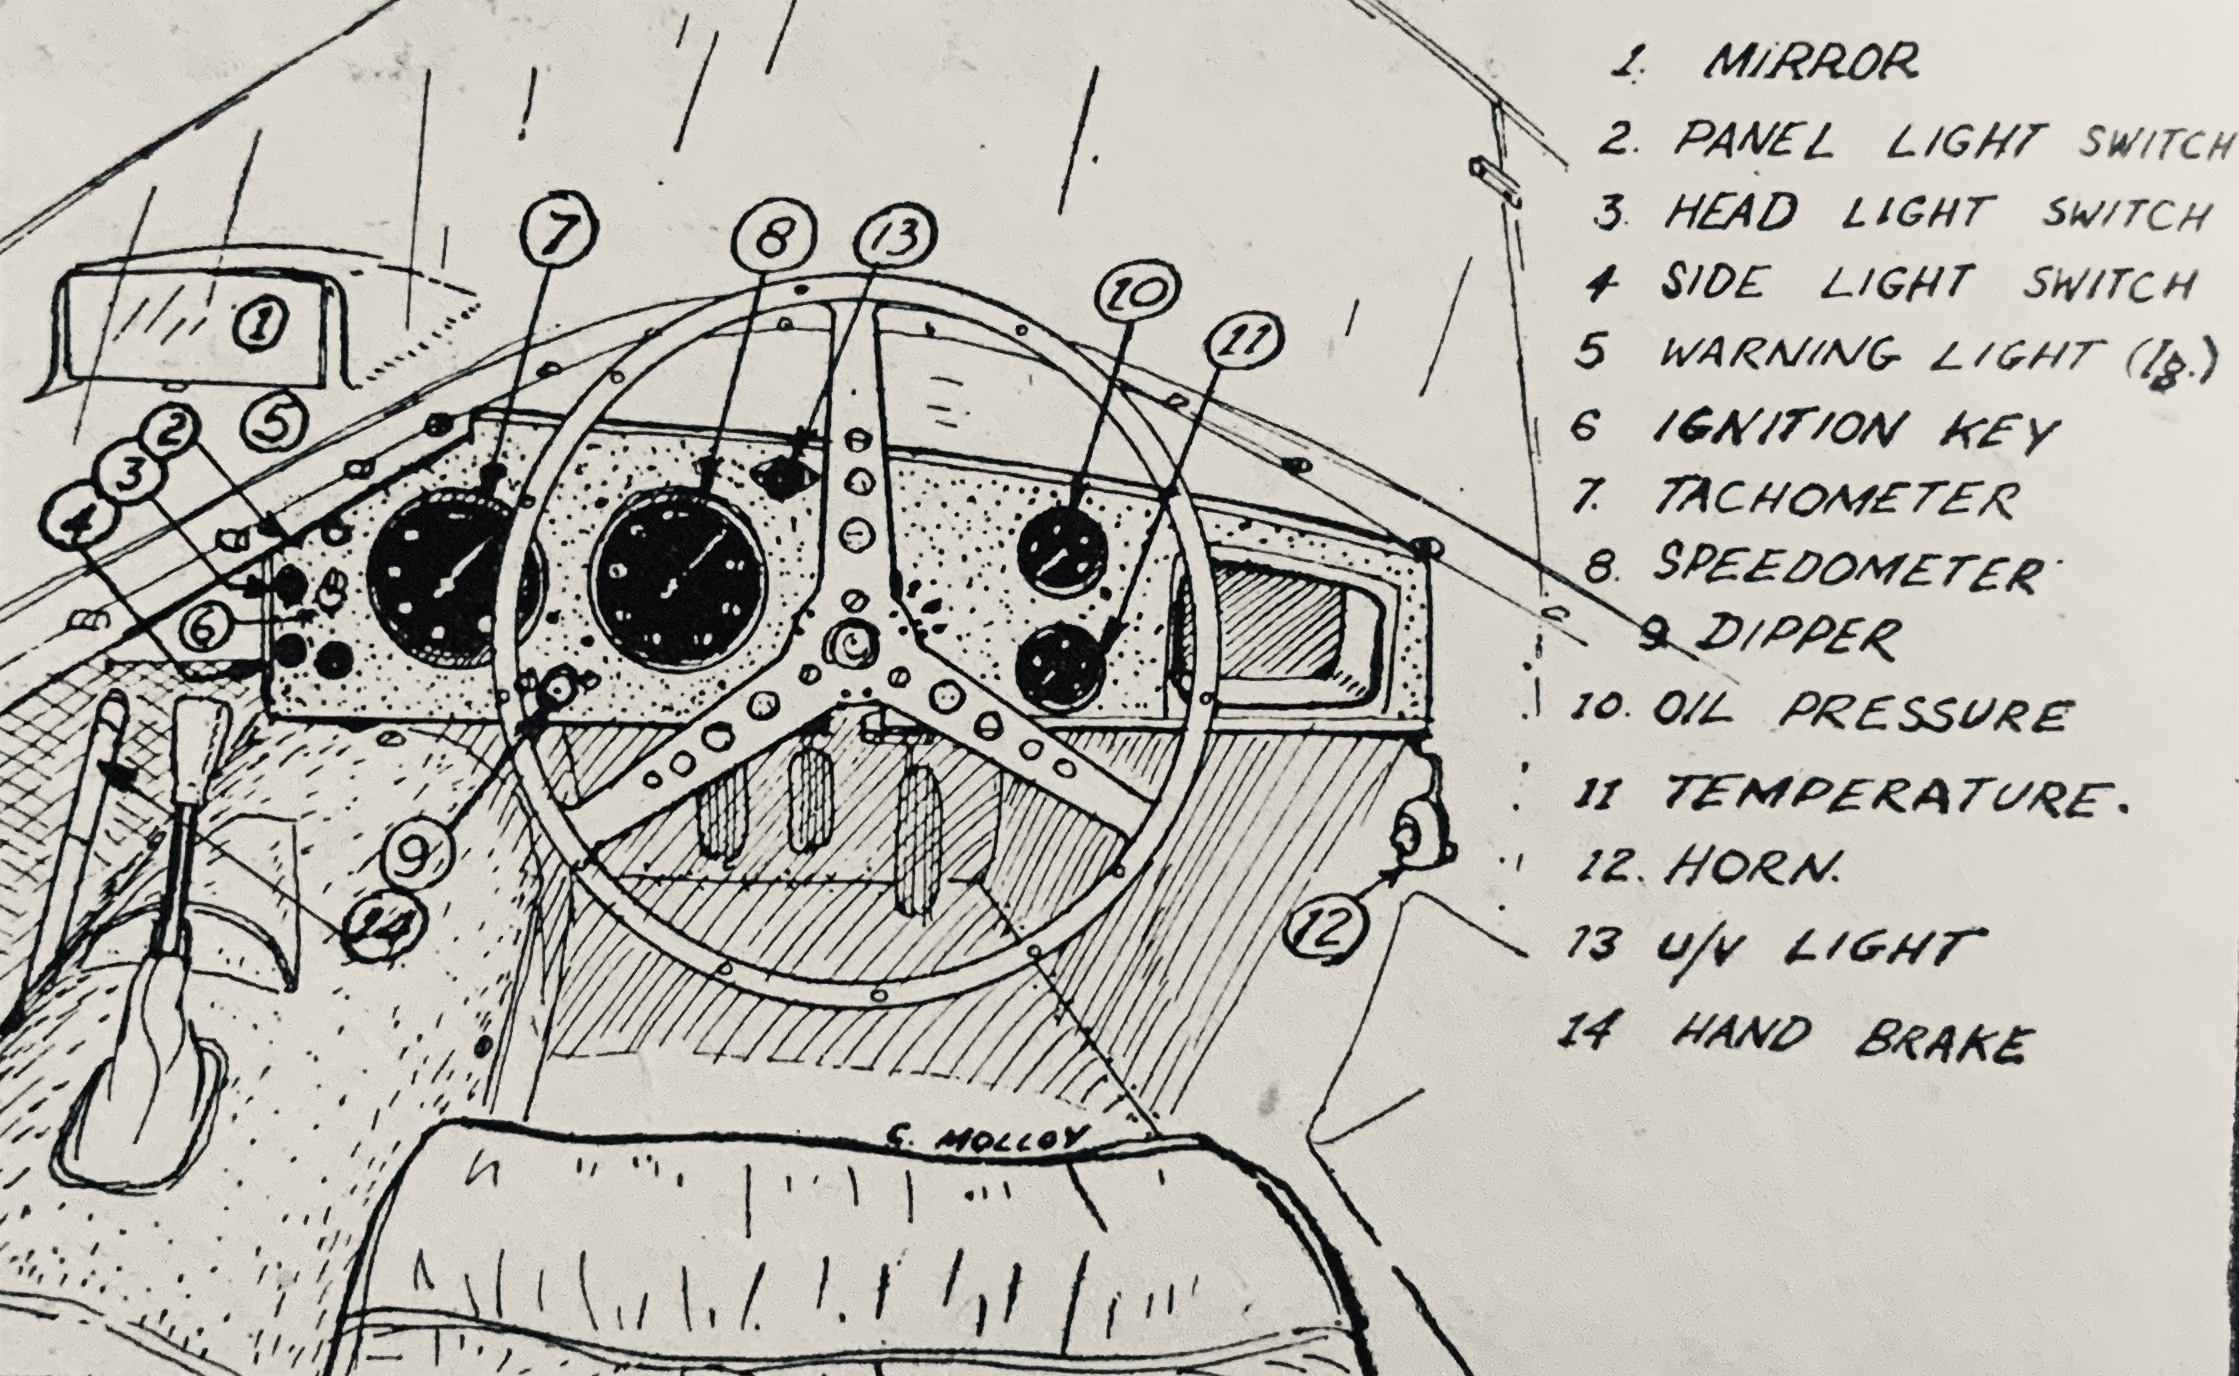 1. MIRROR
2. PANEL LIGHT SWITCH
3. HEAD LIGHT SWITCH
4 SIDE LIGHT SWITCH
5 WARNING LIGHT (Ig.)
6 IGNITION KEY
7. TACHOMETER
8. SPEEDOMETER
9 DIPPER
10. OIL PRESSURE
11 TEMPERATURE.
12. HORN.
13 U/V LIGHT
14 HAND BRAKE
7
8
13
10
11
1
5
2
3
4
6
9
14
12
G. MOLLOY